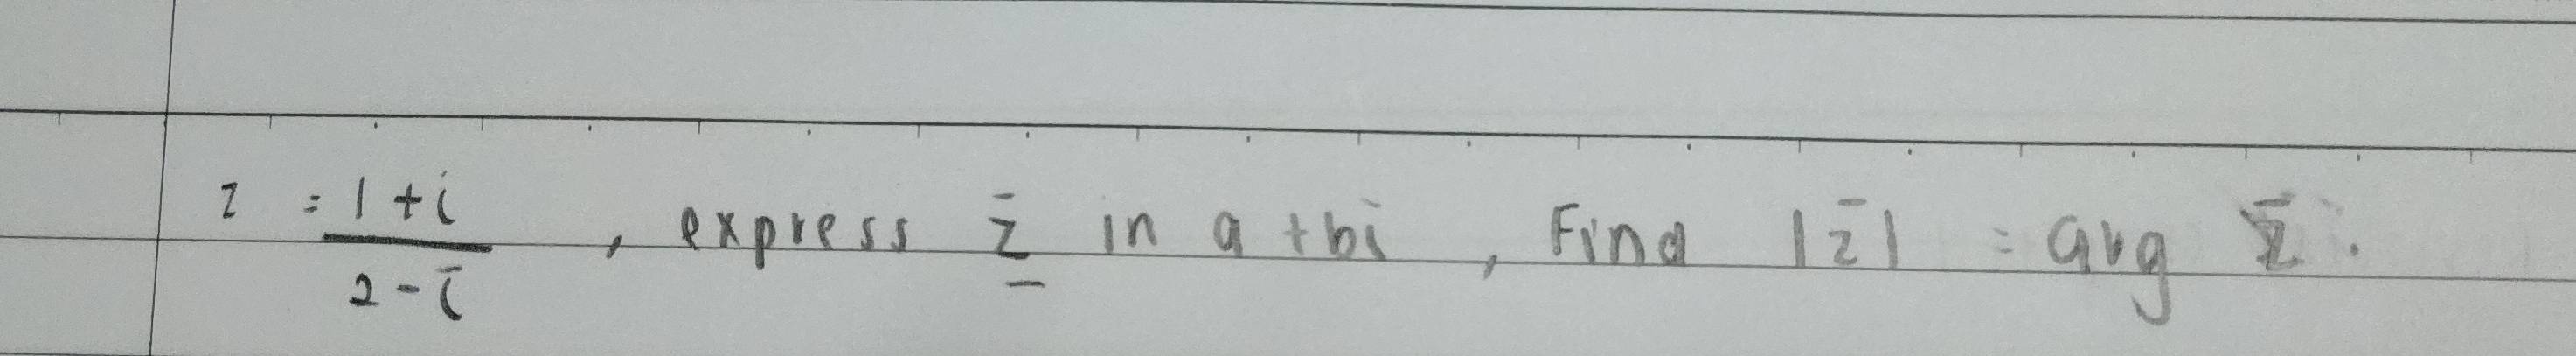 z = 1+i / 2-i , express z̄ in a+bi , Find |z̄| = arg z̄ .